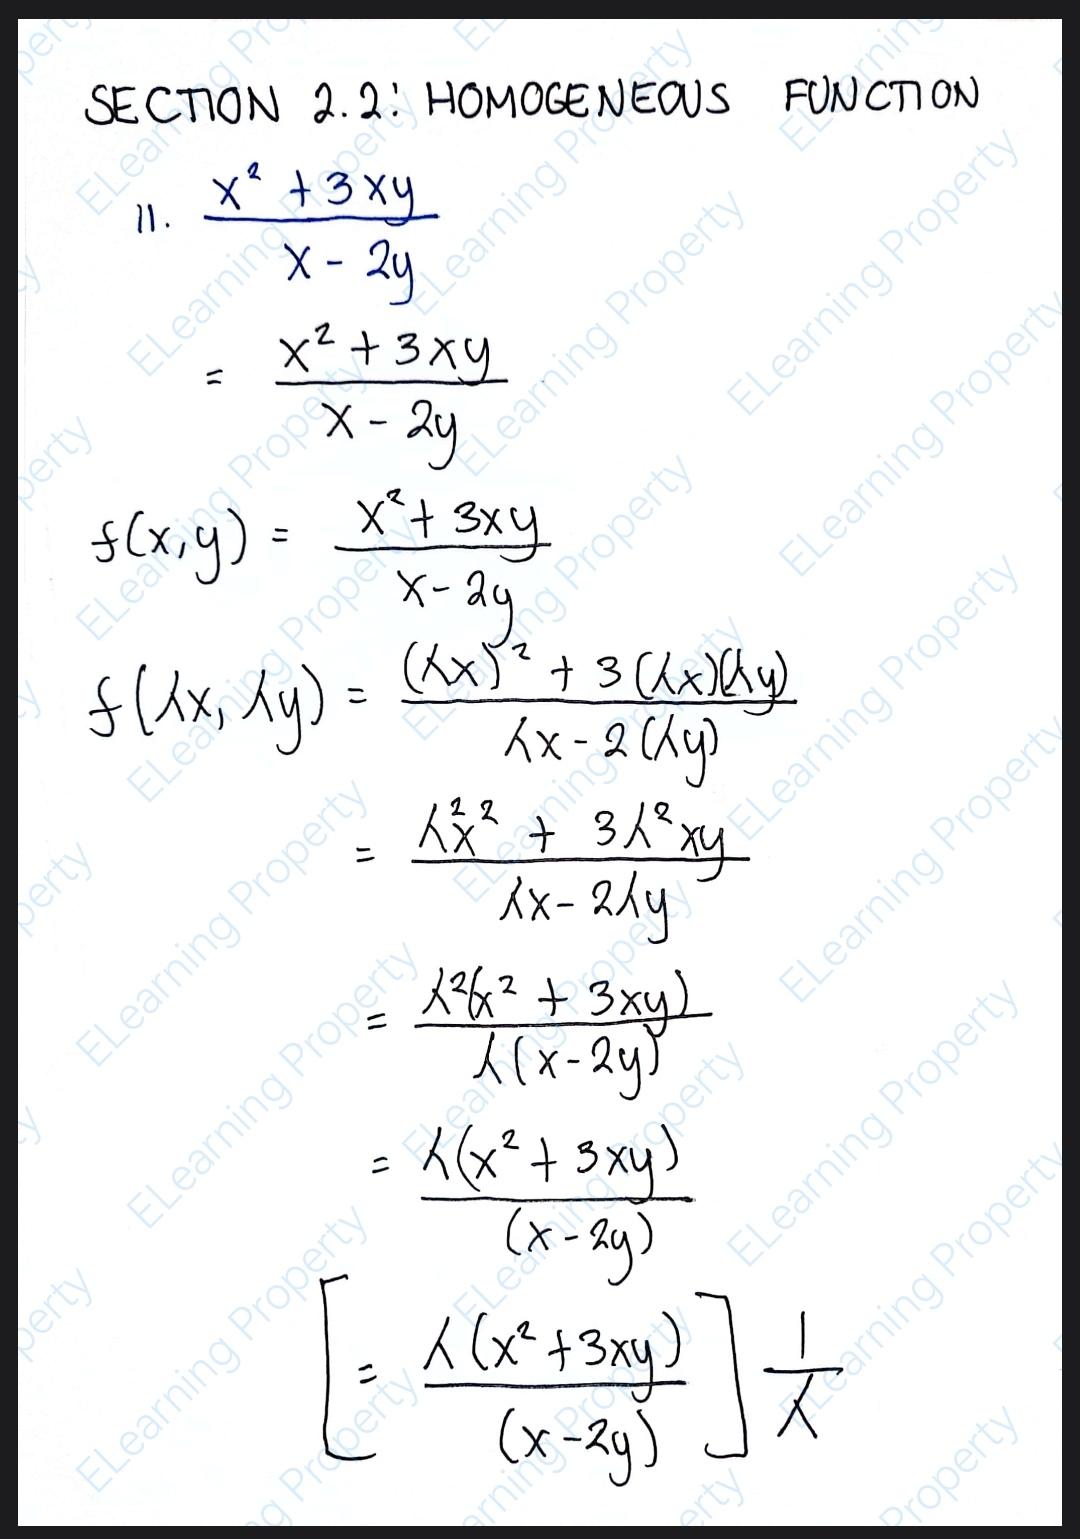 SECTION 2.2: HOMOGENEOUS FUNCTION
11. x² + 3xy / x - 2y
= x² + 3xy / x - 2y
f(x,y) = x² + 3xy / x - 2y
f(λx, λy) = (λx)² + 3(λx)(λy) / λx - 2(λy)
= λ²x² + 3λ²xy / λx - 2λy
= λ²(x² + 3xy) / λ(x - 2y)
= λ(x² + 3xy) / (x - 2y)
[= λ(x² + 3xy) / (x - 2y)] 1/λ
ELearning Property